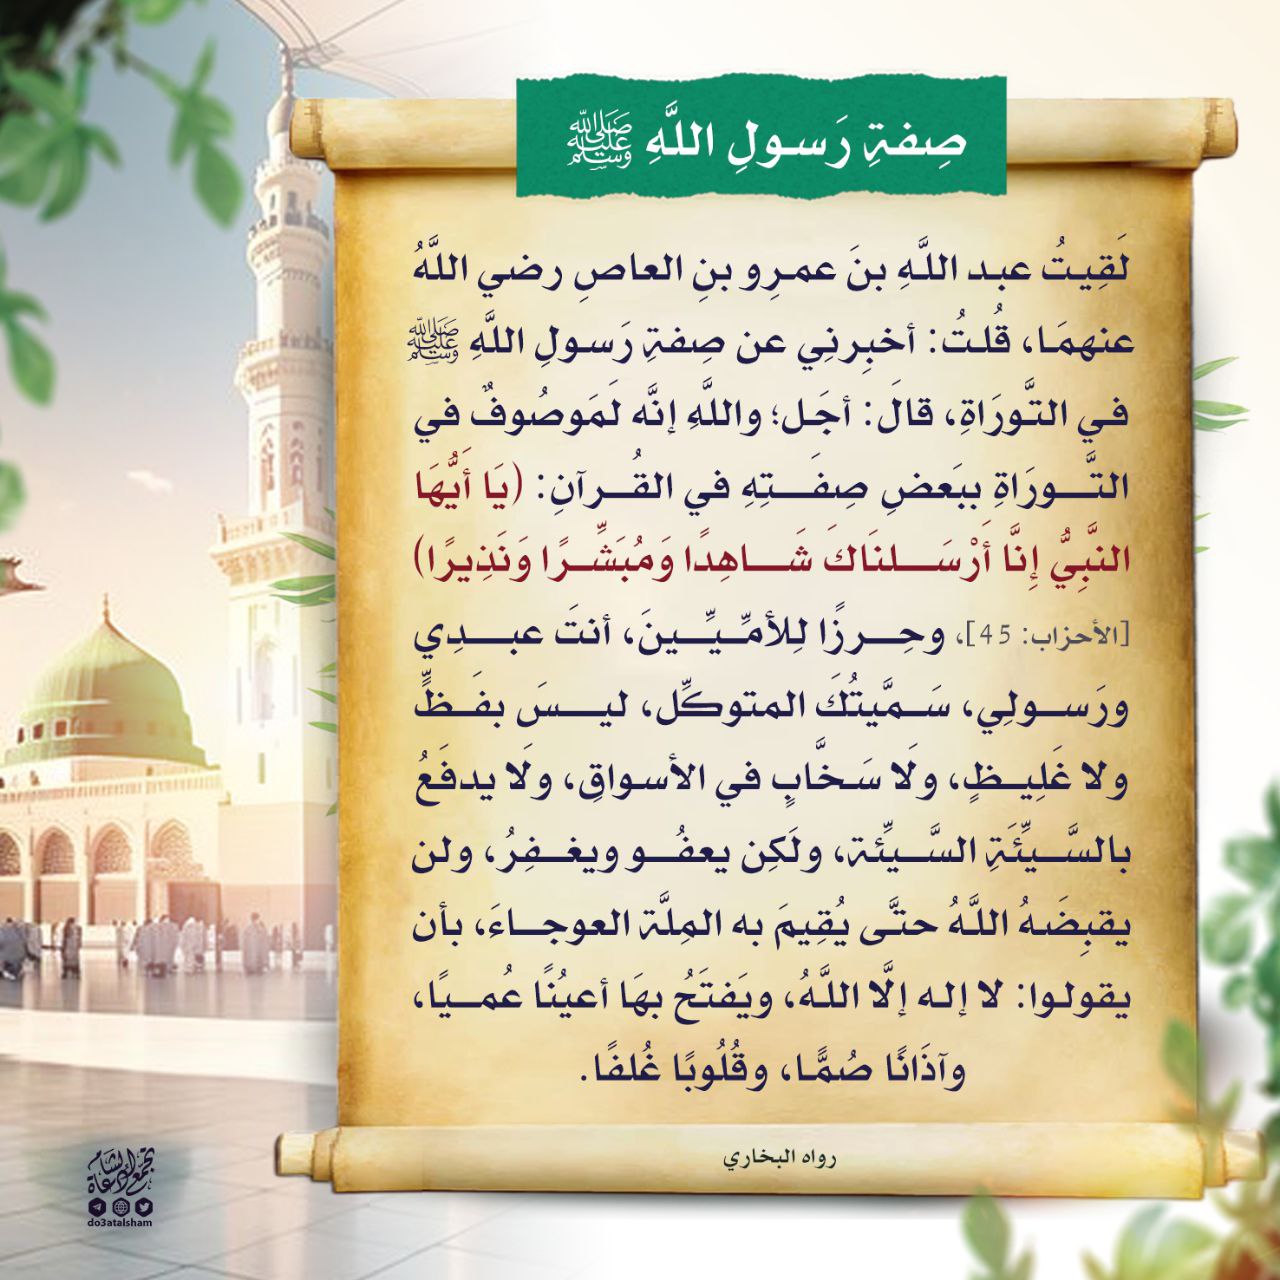 صِفةِ رَسولِ اللَّهِ ﷺ
لَقِيتُ عبد اللَّهِ بنَ عمرِو بنِ العاصِ رضي اللَّهُ
عنهمَا، قُلتُ: أخبِرنِي عن صِفةِ رَسولِ اللَّهِ ﷺ
في التَّورَاةِ، قالَ: أجَل؛ واللَّهِ إنَّه لَمَوصُوفٌ في
التَّورَاةِ ببَعضِ صِفَتِهِ في القُرآنِ: (يَا أَيُّهَا
النَّبِيُّ إِنَّا أَرْسَلنَاكَ شَاهِدًا وَمُبَشِّرًا وَنَذِيرًا)
[الأحزاب: 45]، وحِرزًا لِلأمِّيِّينَ، أنتَ عبدِي
ورَسولِي، سَمَّيتُكَ المتوكِّل، ليسَ بفَظٍّ
ولا غَلِيظٍ، ولَا سَخَّابٍ في الأسواقِ، ولَا يدفَعُ
بالسَّيِّئَةِ السَّيِّئة، ولَكِن يعفُو ويغفِرُ، ولن
يقبِضَهُ اللَّهُ حتَّى يُقِيمَ به المِلَّة العوجاءَ، بأن
يقولوا: لا إله إلَّا اللَّهُ، ويَفتَحُ بهَا أعيُنًا عُميًا،
وآذَانًا صُمًّا، وقُلُوبًا غُلفًا.
رواه البخاري
تجمع دعاة الشام
do3atalsham